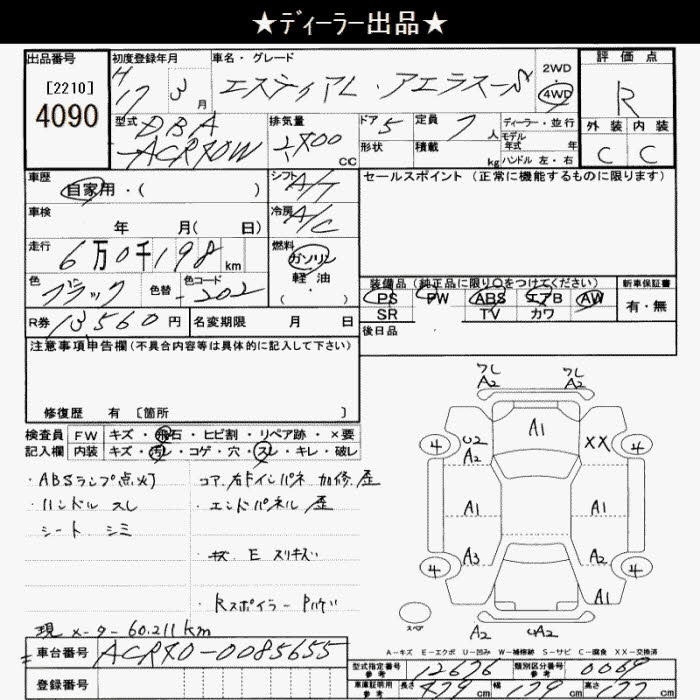 ★ディーラー出品★
出品番号
[2210]
4090
初度登録年月
H17 3月
車名・グレード
エスティマL・アエラスーS
2WD
4WD
評価点
R
外装 内装
C C
型式
DBA
-ACR40W
排気量
2400
cc
ドア 5
形状
定員 7人
積載 kg
ディーラー・並行
モデル年式 年
ハンドル 左・右
車歴
自家用・( )
シフト
A/T
セールスポイント(正常に機能するものに限ります)
車検
年 月( 日)
冷房
A/C
走行
6万0千198km
燃料
ガソリン
軽油
・
( )
色
ブラック
色替
カラーコード
-202
装備品(純正品に限り○をつけてください)
PS PW ABS エアB AW
SR TV カワ
新車保証書
有・無
R券 13560円
名変期限 月 日
後日品
注意事項申告欄(不具合内容等は具体的に記入して下さい)
修復歴 有 〔箇所 〕
検査員 FW キズ・飛石・ヒビ割・リペア跡・×要
記入欄 内装 キズ・汚レ・コゲ・穴・スレ・キレ・破レ
・ABSランプ点灯
・ハンドル スレ
・シート シミ
コア、右Fインパネ 加修、歪
・エンドパネル 歪
・キズ E スリキズ
・Rスポイラー
現メーター60.211km
車台番号 ACR40-0085655
登録番号
ワレ
A2
ワレ
A2
A1
4
U2
A2
XX
4
A1
A1
A3
A2
4
4
A1
スペア
A2
A2
A-キズ E-エクボ U-凹み W-補修跡 S-サビ C-腐食 XX-交換済
型式指定番号
参考
12676
類別区分番号
参考
0069
車庫証明用
参考
長さ 479cm
幅 179cm
高さ 177cm